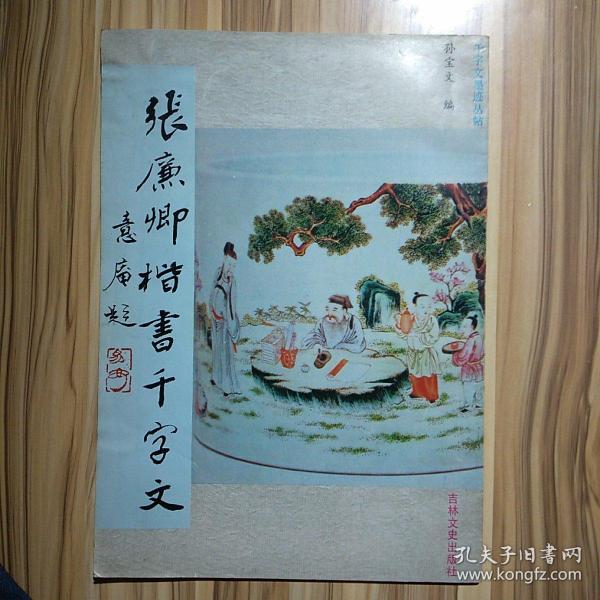 千字文墨迹丛帖
孙宝文 编
張廉卿楷書千字文
意庵題
吉林文史出版社
孔夫子旧书网
www.kongfz.com